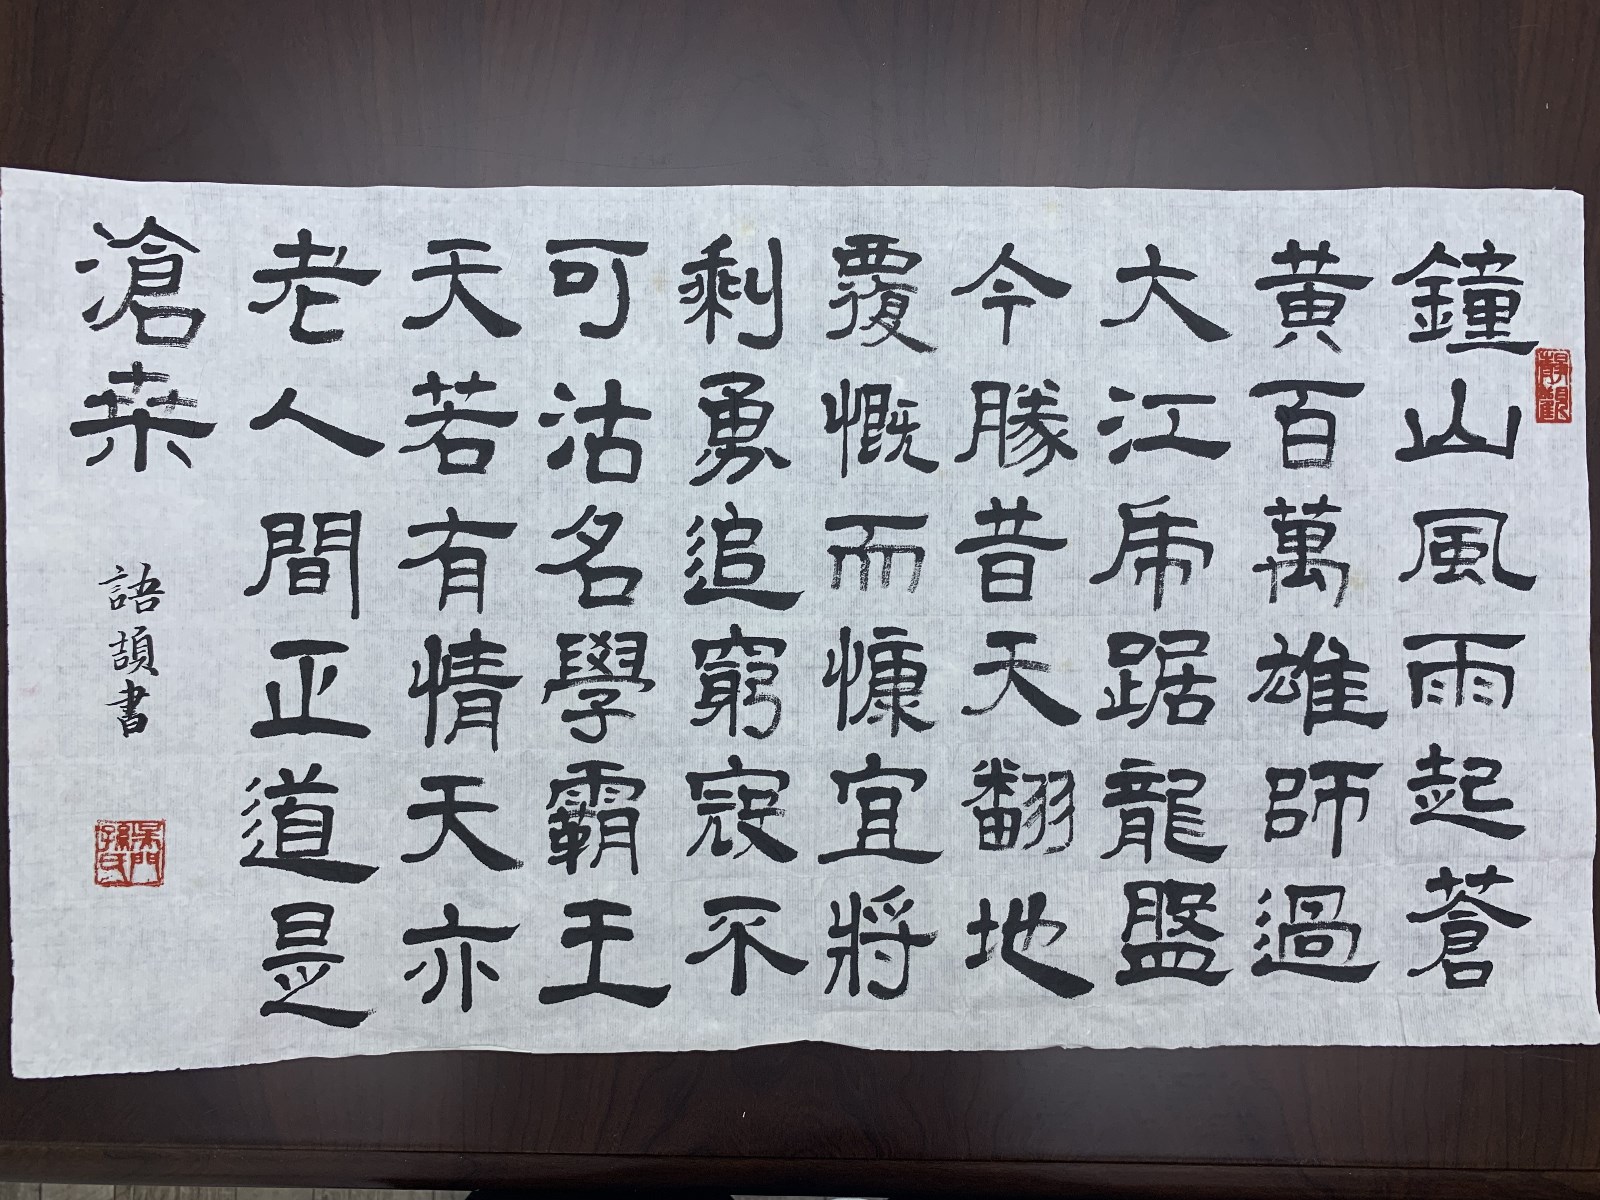 鐘山風雨起蒼
黃百萬雄師過
大江虎踞龍盤
今勝昔天翻地
覆慨而慷宜將
剩勇追窮寇不
可沽名學霸王
天若有情天亦
老人間正道是
滄桒
語頡書
吳門孫氏
靜觀